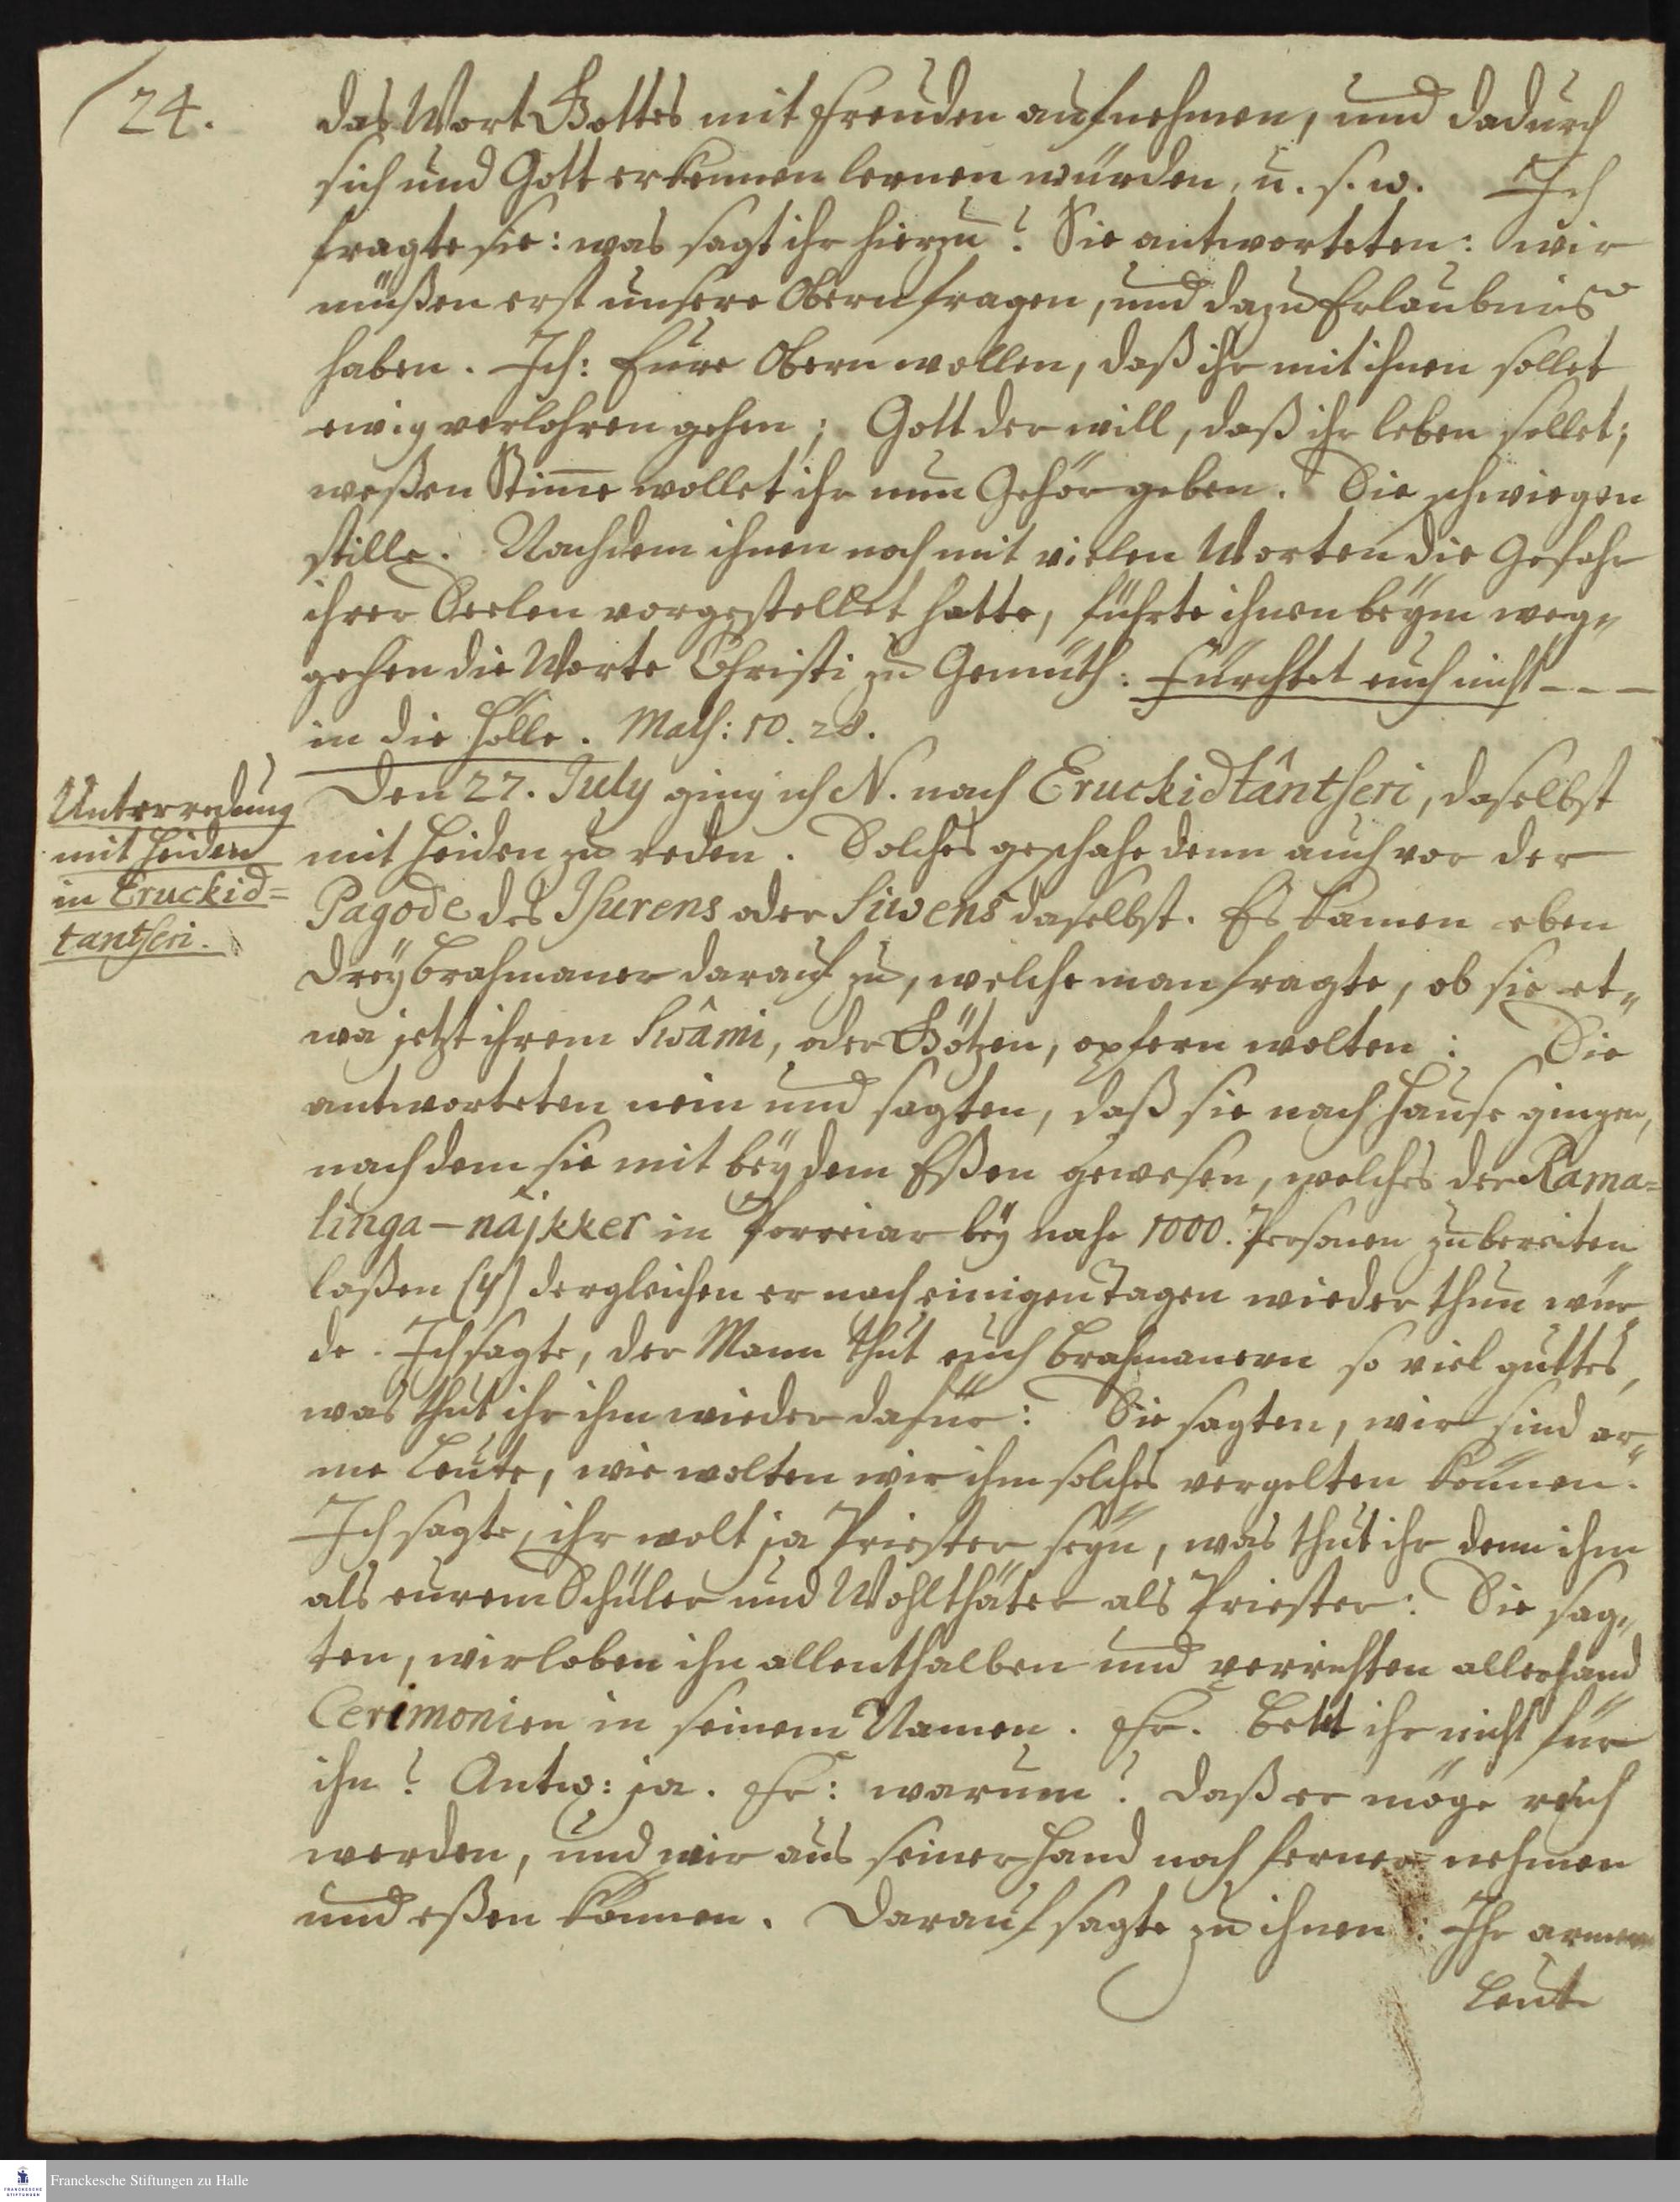 24.
das Wort Gottes mit Freuden aufnehmen, und dadurch
sich und Gott erkennen lernen würden, u. s. w. Ich
fragte sie: was sagt ihr hierzu? Sie antworteten: wir
müßen erst unsere Obern fragen, und dazu Erlaubnis
haben. Ich: Eure Obern wollen, daß ihr mit ihnen sollet
ewig verlohren gehen; Gott der will, daß ihr leben sollet;
weßen Stim̄e wollet ihr nun Gehör geben. Sie schwiegen
stille. Nachdem ihnen noch mit vielen Worten die Gefahr
ihrer Seelen vorgestellet hatte, führte ihnen beÿm weg-
gehen die Worte Christi zu Gemüth: Fürchtet euch nicht - - -
in die Hölle. Math: 10. 28.
Unterredung
mit Heiden
in Eruckid=
tantseri.
Den 27. July ging ich N. nach Eruckidtântseri, daselbst
mit Heiden zu reden. Solches geschahe denn auch vor der
Pagode des Isurens oder Siwens daselbst. Es kamen eben
dreÿ Brahmaner darauf zu, welche man fragte, ob sie et-
wa jetzt ihrem Swâmi, oder Götzen, opfern wolten: Sie
antworteten nein und sagten, daß sie nach Hause gingen,
nachdem sie mit beÿ dem Eßen gewesen, welches der Rama=
linga-nâjkker in Porreiar beÿ nahe 1000. Personen zubereiten
laßen (y) dergleichen er nach einigen Tagen wieder thun wür-
de. Ich sagte, der Mann thut euch Brahmanern so viel guttes,
was thut ihr ihm wieder dafür: Sie sagten, wir sind ar-
me Leute, wie wolten wir ihm solches vergelten können.
Ich sagte, ihr wolt ja Priester seÿn, was thut ihr denn ihm
als eurem Schüler und Wohlthäter als Priester: Sie sag-
ten, wir loben ihn allenthalben und verrichten allerhand
Cerimonien in seinem Namen. Fr. Betet ihr nicht für
ihn? Antw: ja. Fr: warum? daß er möge reich
werden, und wir aus seiner Hand noch ferner nehmen
und eßen können. Darauf sagte zu ihnen: Ihr armen
Leute
Franckesche Stiftungen zu Halle
FRANCKESCHE
STIFTUNGEN